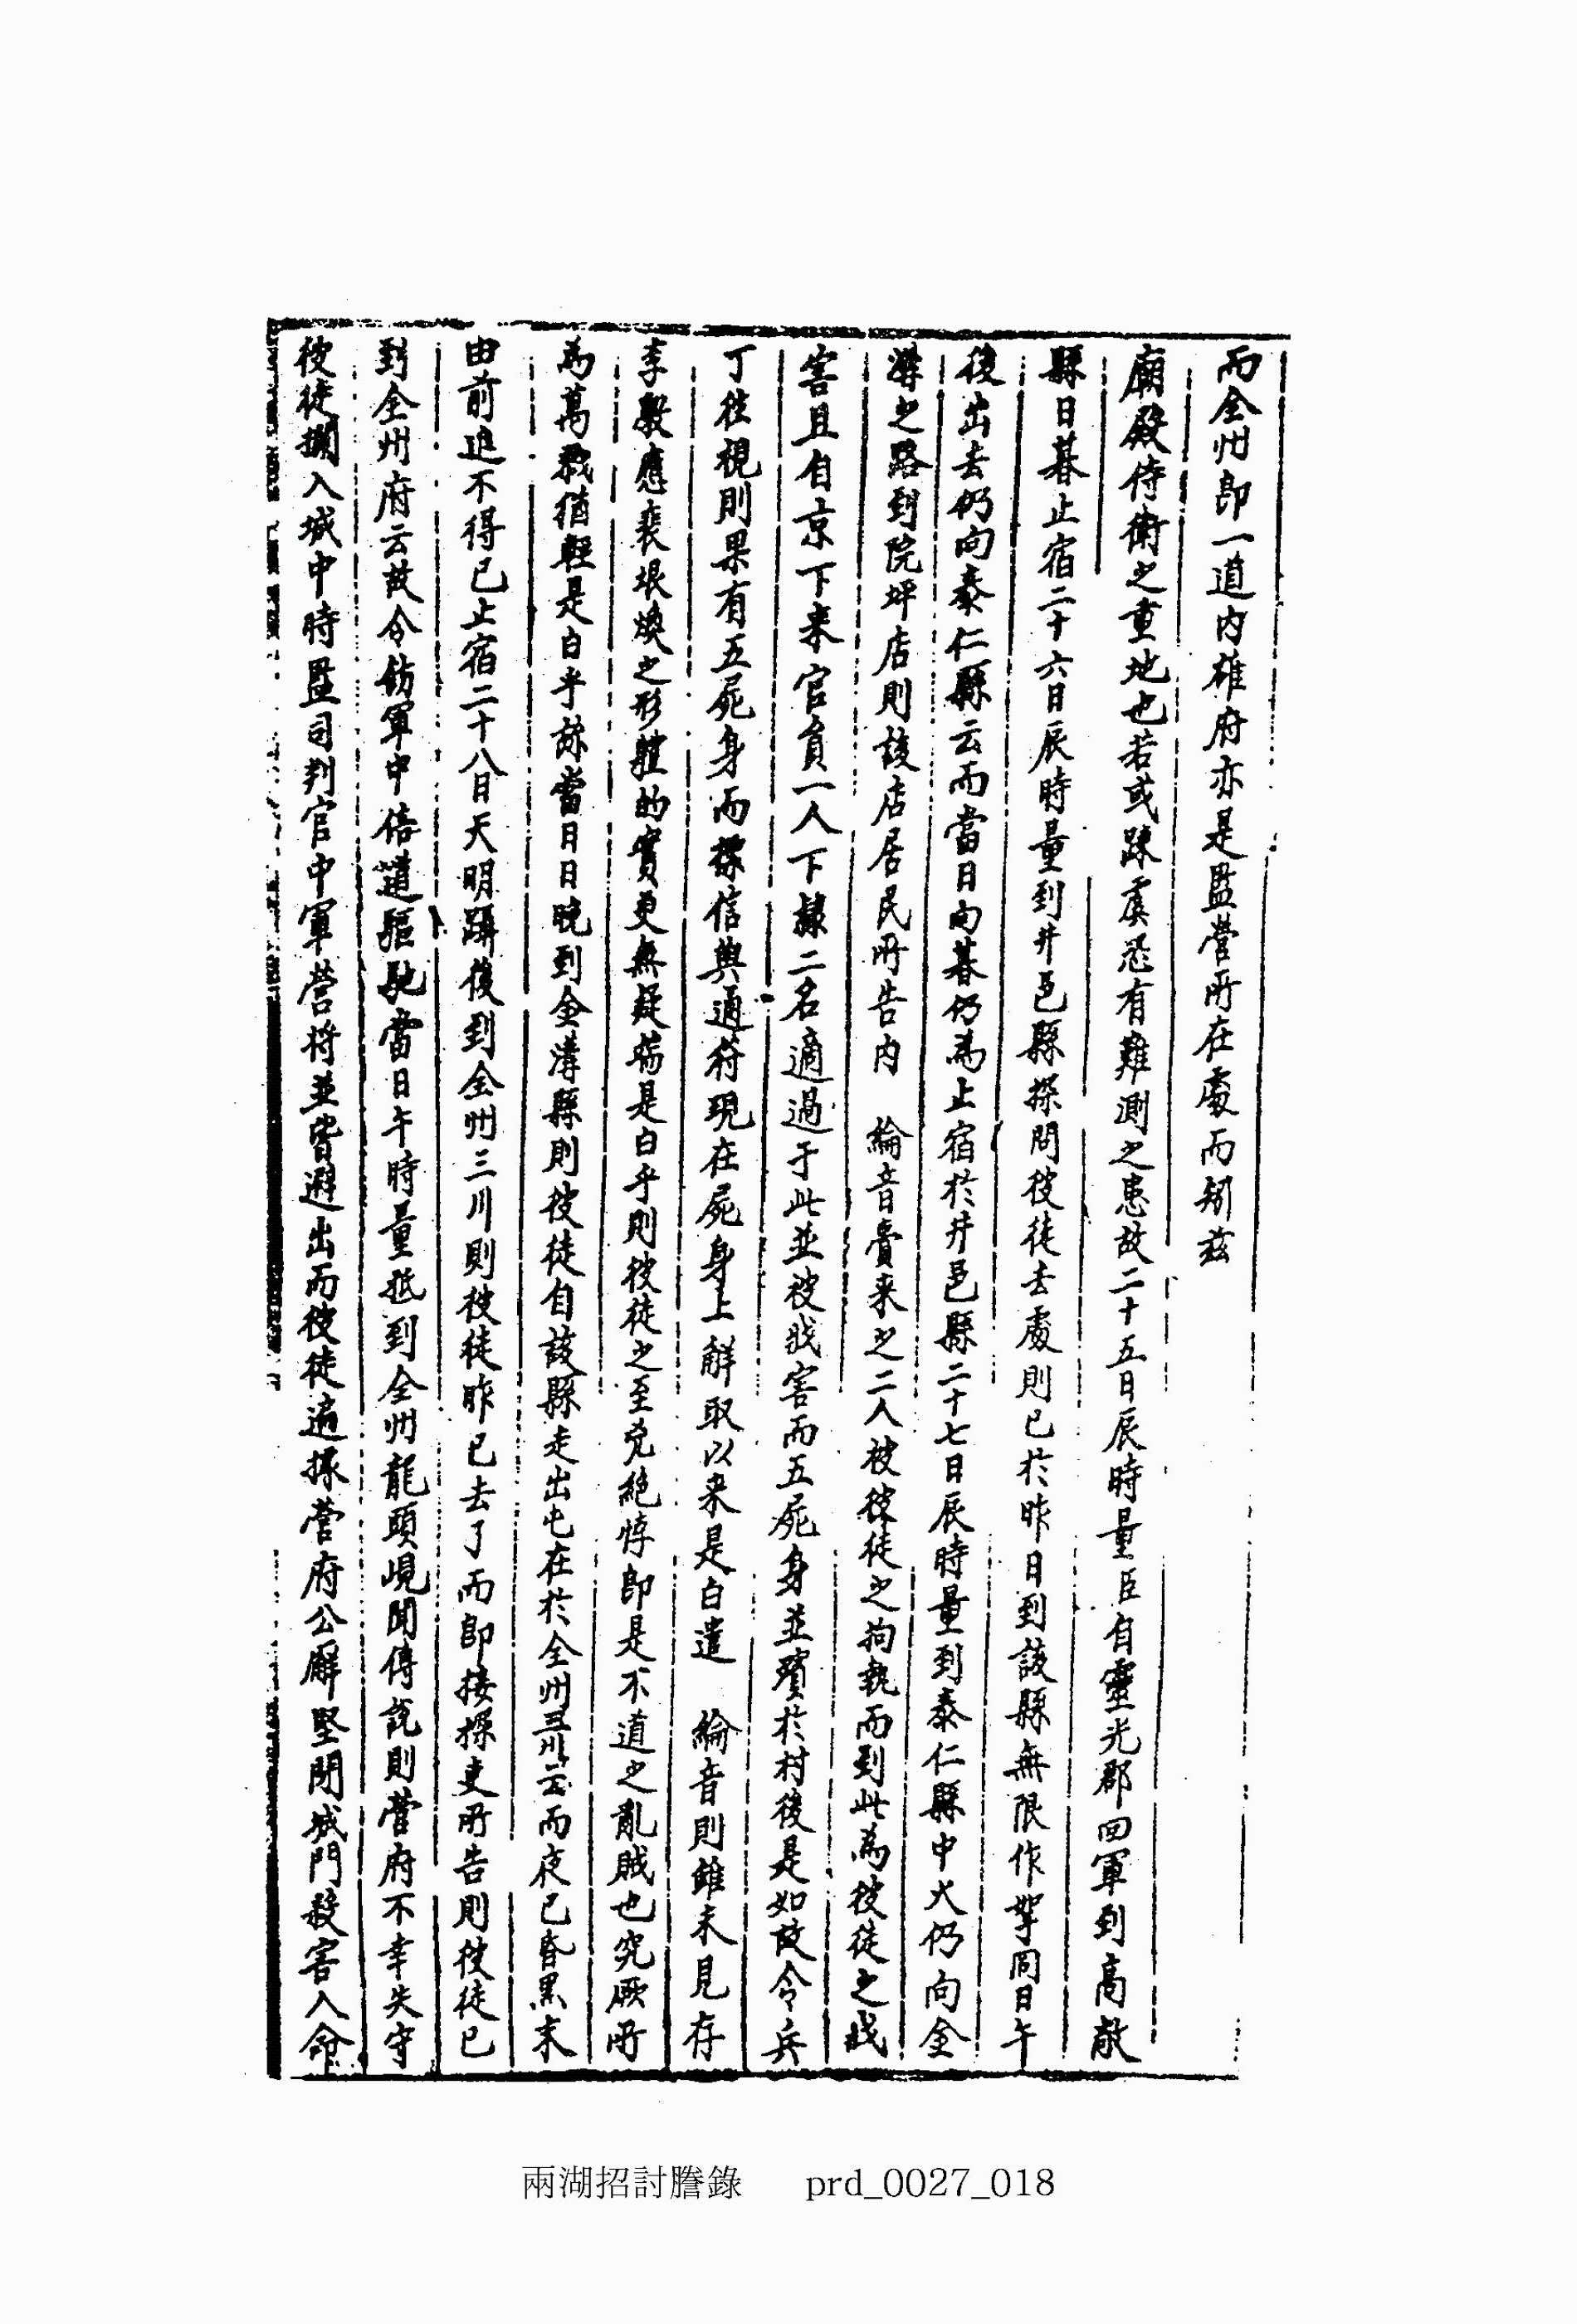 而全州卽一道內雄府亦是監營所在處而矧玆
廟殿侍衛之重地也若或踈虞恐有難測之患故二十五日辰時量臣自靈光郡回軍到高敞
縣日暮止宿二十六日辰時量到井邑縣探問彼徒去處則已於昨日到該縣無限作挐同日午
後出去仍向泰仁縣云而當日向暮仍爲止宿於井邑縣二十七日辰時量到泰仁縣中火仍向金
溝之路到院坪店則該店居民所告內 綸音賫來之二人被彼徒之拘執而到此爲彼徒之戕
害且自京下來官員一人下隸二名適過于此並被戕害而五屍身並殯於村後是如故令兵
丁往視則果有五屍身而探信與通符現在屍身上解取以來是白遣 綸音則雖未見存
李斅應裵垠煥之形軆的實更無疑端是白乎則彼徒之至兇絕悖卽是不道之亂賊也究厥所
爲萬戮猶輕是白乎旀當日日晩到金溝縣則彼徒自該縣走出屯在於全州三川云而夜已昏黑末
由前進不得已止宿二十八日天明躡後到全州三川則彼徒昨已去了而卽接探吏所告則彼徒已
到全州府云故令飭軍中倍道驅馳當日午時量抵到全州龍頭峴聞傳說則營府不幸失守
彼徒攔入城中時監司判官中軍營將並皆避出而彼徒遍探營府公廨堅閉城門殺害人命
兩湖招討謄錄 prd_0027_018